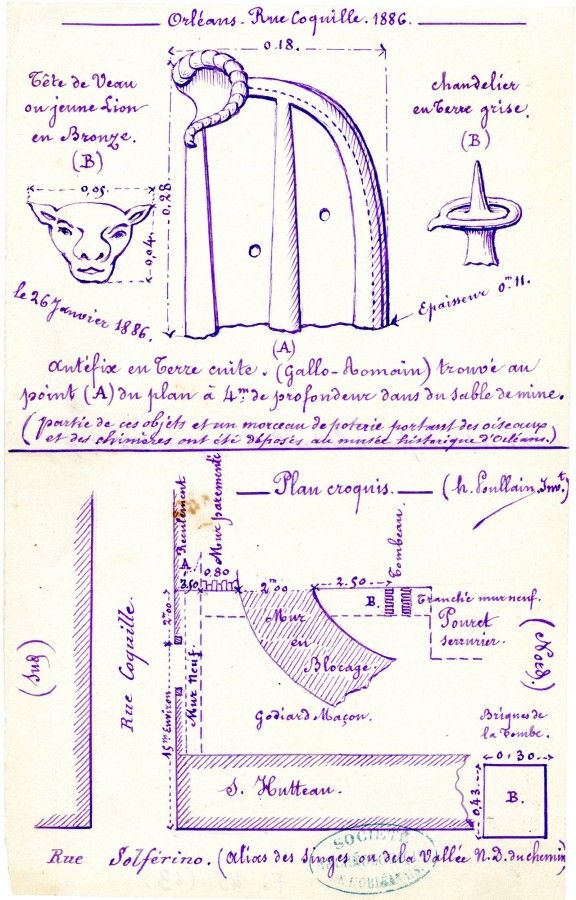 Orléans. Rue Coquille. 1886.
0.18.
Tête de Veau
ou jeune Lion
en Bronze.
(B)
chandelier
en Terre grise.
(B)
0,05.
0,04.
0,28
le 26 Janvier 1886.
Epaisseur 0m11.
(A)
antéfix en Terre cuite. (Gallo-Romain) trouvé au
point (A) du plan à 4m. de profondeur dans du sable de mine.
(partie de ces objets et un morceau de poterie portant des oiseaux
et des chimères ont été déposés au musée historique d'Orléans.)
Plan croquis.
(h. Poullain. Invt.)
Reculement
Mur parementé
Tombeau
A
3.50
0.80
2m00
2.50
B.
Tranchée mur neuf.
Pouret
serrurier.
(Sud)
Rue Coquille.
2m00
Mur neuf.
15m Environ
Mur
en
Blocage.
Godiard Maçon.
(Nord)
Briques de
la Tombe.
0,30
0,43
B.
S. Hutteau.
Rue Solférino. (alias des Singes ou de la Vallée N.D. du chemin)
SOCIÉTÉ
DE L'ORLÉANAIS